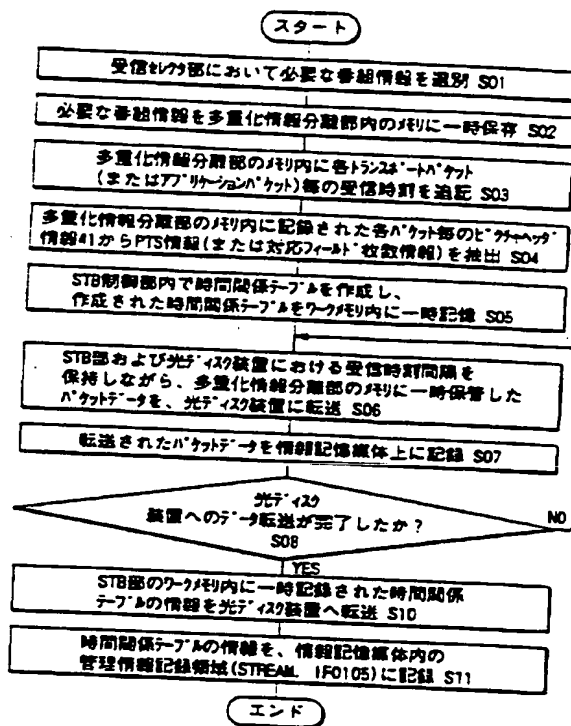 スタート
受信セレクタ部において必要な番組情報を選別 S01
必要な番組情報を多重化情報分離部内のメモリに一時保存 S02
多重化情報分離部のメモリ内に各トランスポートパケット
(またはアプリケーションパケット)毎の受信時刻を追記 S03
多重化情報分離部のメモリ内に記録された各パケット部のピクチャヘッダ
情報41からPTS情報(または対応フィールド枚数情報)を抽出 S04
STB制御部内で時間関係テーブルを作成し、
作成された時間関係テーブルをワークメモリ内に一時記憶 S05
STB部および光ディスク装置における受信時刻間隔を
保持しながら、多重化情報分離部のメモリに一時保管した
パケットデータを、光ディスク装置に転送 S06
転送されたパケットデータを情報記憶媒体上に記録 S07
光ディスク
装置へのデータ転送が完了したか？
S08
NO
YES
STB部のワークメモリ内に一時記録された時間関係
テーブルの情報を光ディスク装置へ転送 S10
時間関係テーブルの情報を、情報記憶媒体内の
管理情報記録領域(STREAM. IFO105)に記録 S11
エンド